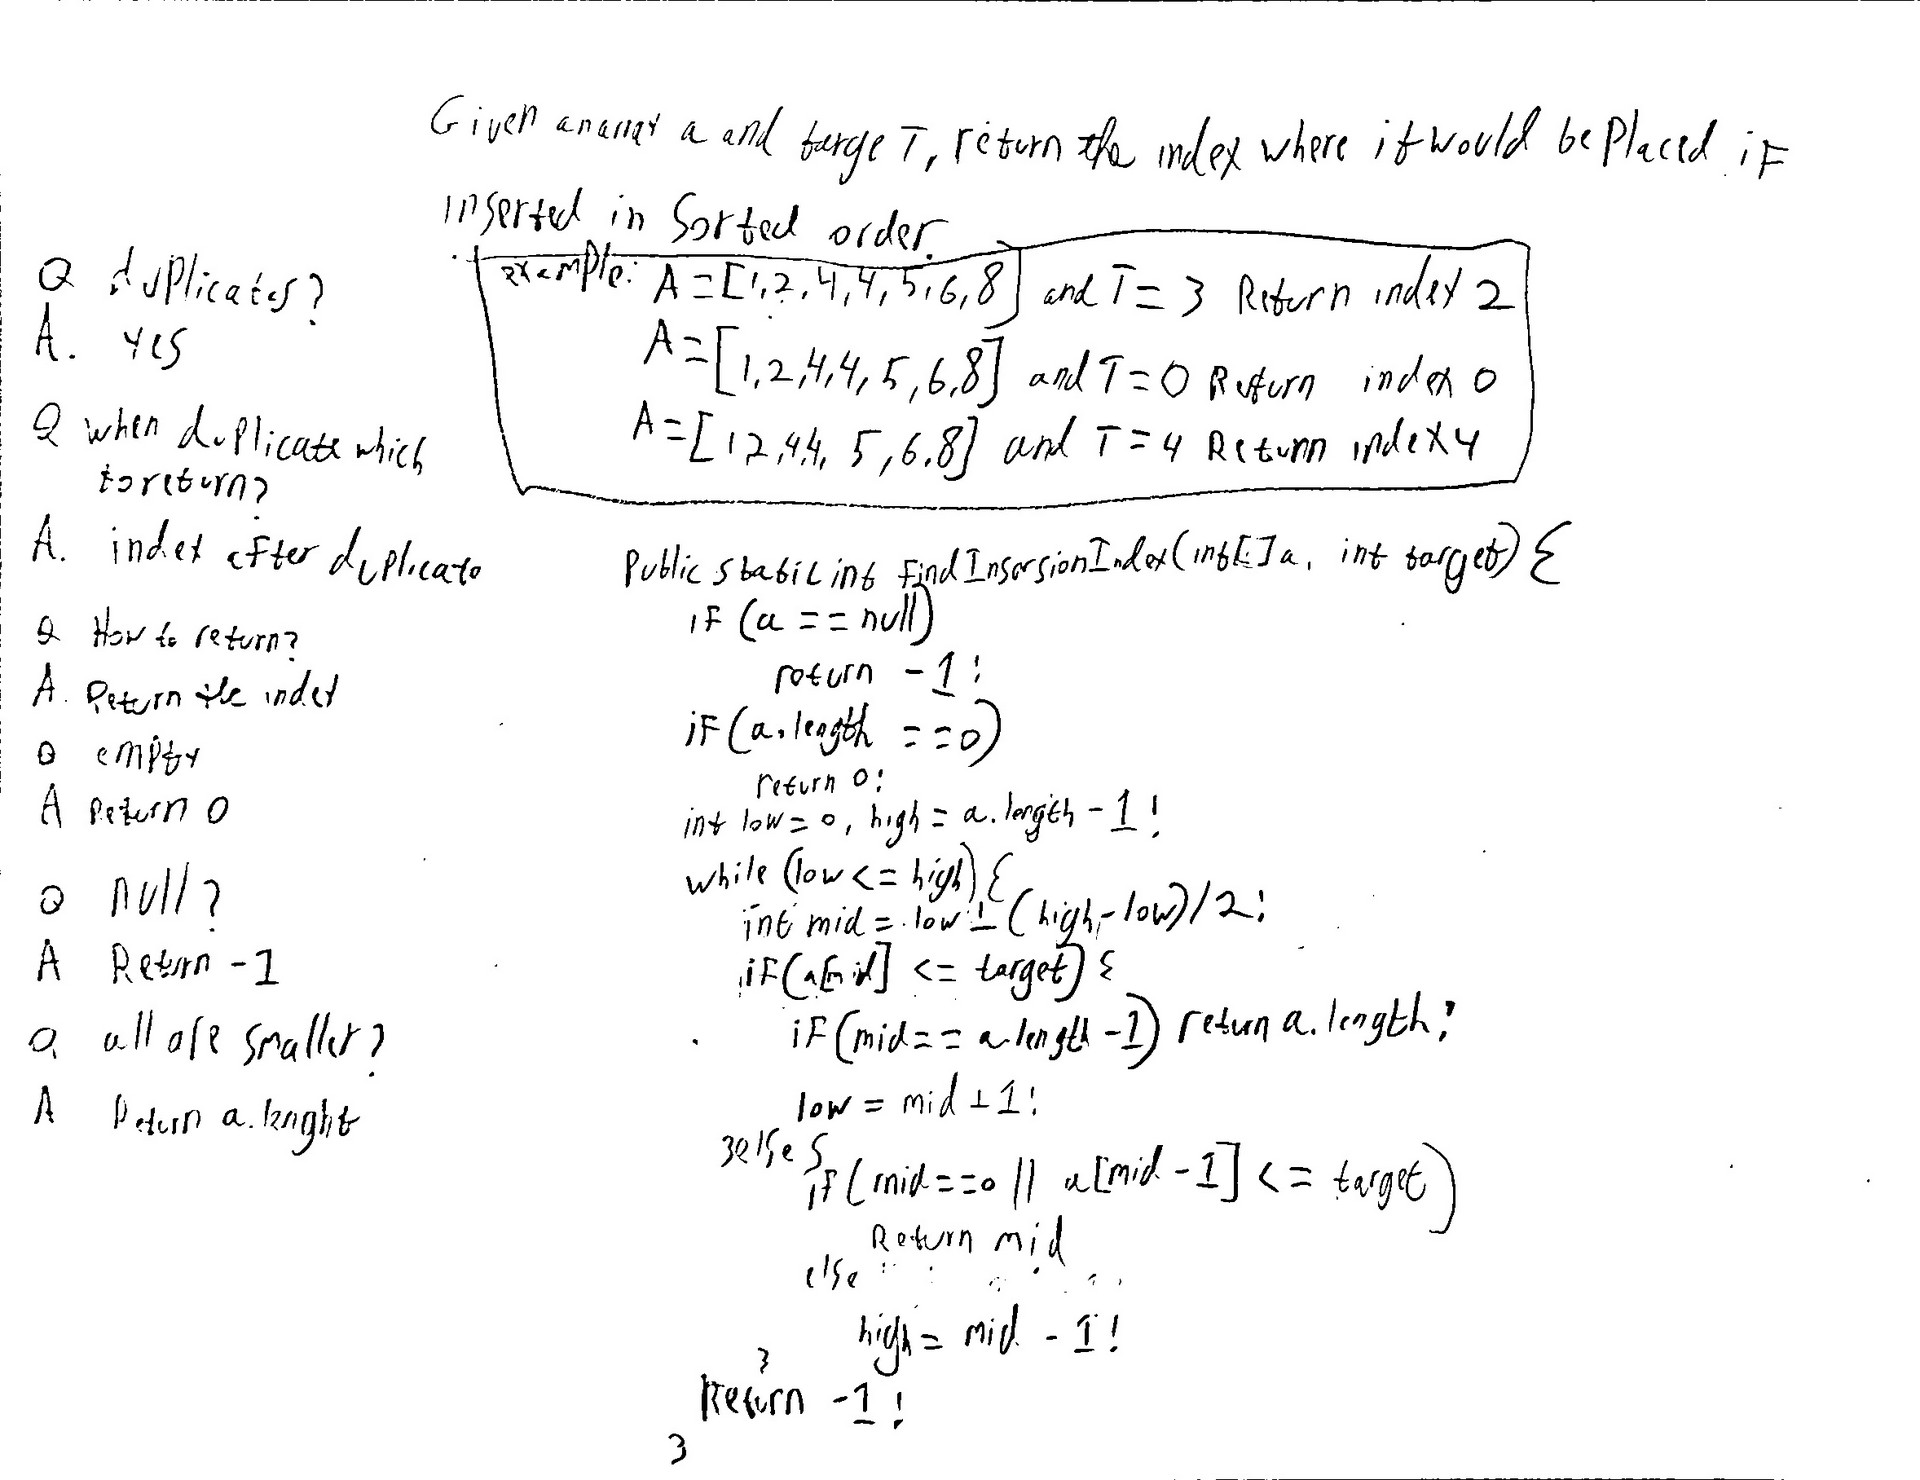 Given an array a and targe T, return the index where it would be placed if
inserted in sorted order.
example: A=[1,2,4,4,5,6,8] and T=3 Return index 2
A=[1,2,4,4,5,6,8] and T=0 Return index 0
A=[12,44, 5,6,8] and T=4 Return index 4
Q duplicates?
A. Yes
Q when duplicate which
to return?
A. index after duplicate
Q How to return?
A. Return the index
Q empty
A Return 0
Q null?
A Return -1
Q all are smaller?
A Return a.lenght
Public static int findInsersionIndex(int[]a, int target) {
if (a == null)
return -1;
if (a.length ==0)
return 0;
int low=0, high = a.length - 1;
while (low <= high) {
int mid = low + (high-low)/2;
if(a[mid] <= target) {
if(mid== a.length -1) return a.length;
low = mid +1;
}else {
if (mid==0 || a[mid -1] <= target)
Return mid
else
high = mid - 1;
}
Return -1;
}